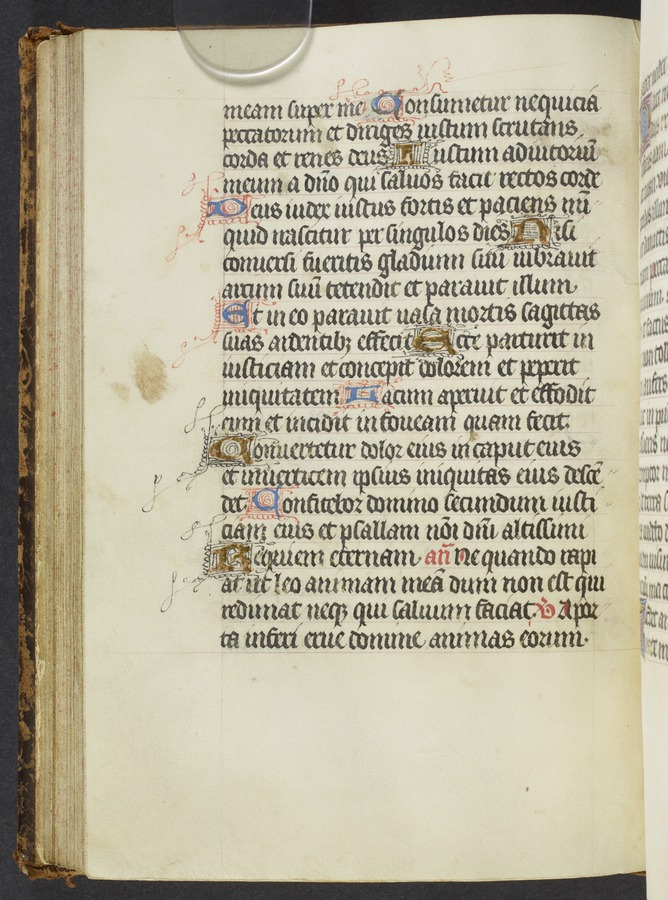 meam super me Consumetur nequicia
peccatorum et diriges iustum scrutans
corda et renes deus Iustum adiutoriũ
meum a dño qui saluos facit rectos corde
Deus iudex iustus fortis et paciens nũ
quid irascitur per singulos dies Nisi
conuersi fueritis gladium suũ uibrauit
arcum suũ tetendit et parauit illum
Et in eo parauit uasa mortis sagittas
suas ardentibꝫ effecit Ecce parturit in
iusticiam et concepit dolorem et peperit
iniquitatem Lacum aperuit et effodit
eum et incidit in foueam quam fecit
Conuertetur dolor eius in caput eius
et in uerticem ipsius iniquitas eius descẽ
det Confitebor domino secundum iusti
ciam eius et psallam nõi dñi altissimi
Requiem eternam añ Ne quando rapi
at ut leo animam meã dum non est qui
redimat neqꝫ qui saluum faciat ℣ A por
ta inferi erue domine animas eorum